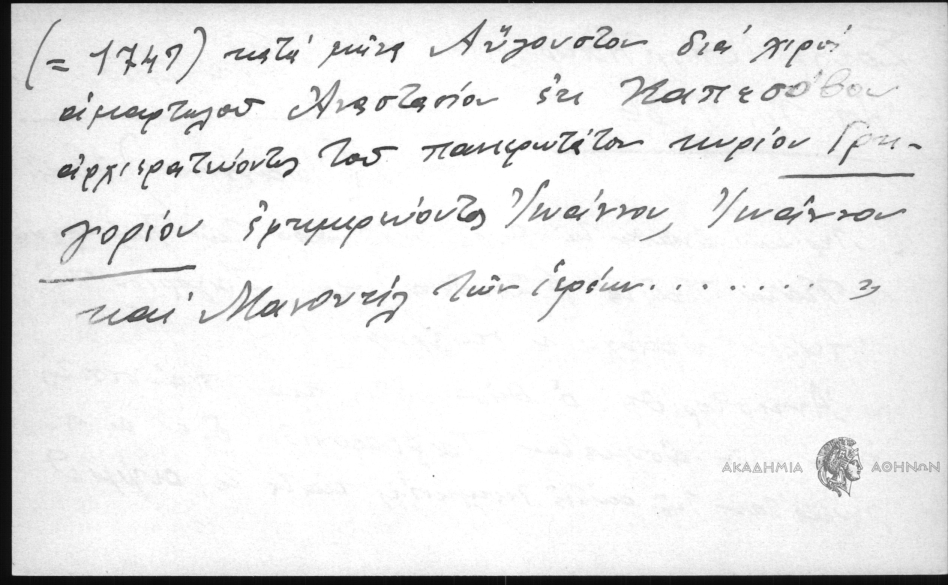 (= 1747) κατά μῆνα Αὔγουστον διά χειρός
ἁμαρτωλοῦ Ἀναστασίου ἐκ Καπεσόβου
ἀρχιερατεύοντος τοῦ πανιερωτάτου κυρίου Γρη-
γορίου ἐφημερεύοντος Ἰωάννου, Ἰωάννου
καί Μανουήλ τῶν ἱερέων. . . . . . . . »
ΑΚΑΔΗΜΙΑ ΑΘΗΝΩΝ